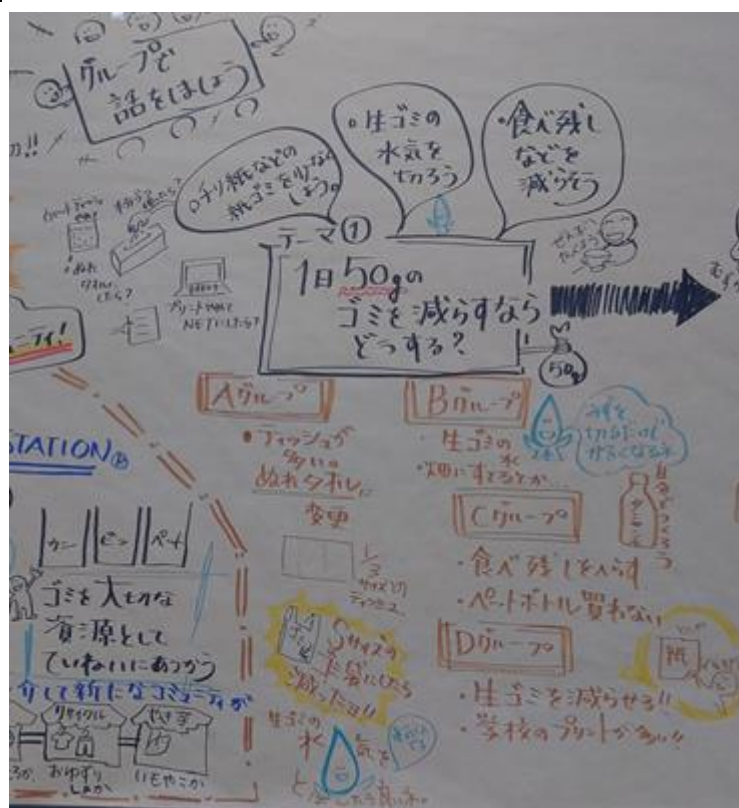 グループで
話をしましょう
!!
チリ紙などの
紙ゴミを少なく
しよう。
生ゴミの
水気を
切ろう
食べ残し
などを
減らそう
テーマ①
1日50gの
ゴミを減らすなら
どうする?
50g
ぬれ
タオル
したら?
プリントやめて
NETにしたら?
ティ!
Aグループ
ティッシュが
多い。
ぬれタオルに
変更
1/2
サイズの
ティッシュ
Sサイズの
袋にしたら
減ったョ!!
生ゴミの
水気を
Bグループ
生ゴミの水
畑にすてるとか...
みずを
切るだけで
かるくなるネ
Cグループ
・食べ残しをへらす
・ペットボトル買わない
Dグループ
・生ゴミを減らせる!!
・学校のプリントが多い!!
紙
STATION
カン
ビン
ペット
ゴミを大切な
資源として
ていねいにあつかう
介して新たなコミュニティが
リサイクル
やさい
おゆずり